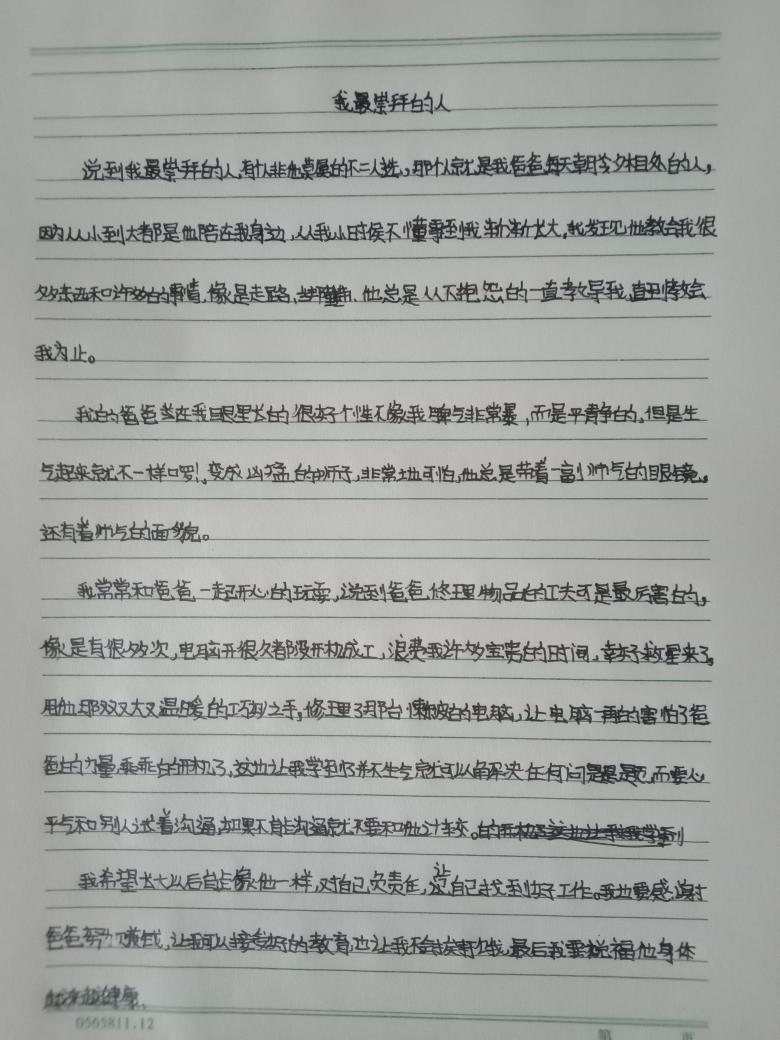 我最崇拜的人
说到我最崇拜的人,有个人非他莫属的不二人选,那个人就是我爸爸每天朝夕相处的人,
因为从小到大都是他陪在我身边,从我小时侯不懂事到我渐渐长大,我发现他教会我很
多东西和许多的事情,像是走路、他总是从不抱怨的一直教导我,直到教会
我为止。
我的爸爸在我眼里长的很好个性不像我脾气非常暴,而是平靜的,但是生
气起來就不一样啰!,变成凶猛的狮子,非常地可怕,他总是带着一副帅气的眼镜。
还有着帅气的面貌。
我常常和爸爸一起开心的玩耍,说到爸爸修理物品的工夫可是最厉害的,
像是有很多次,电脑开很久都没开机成工,浪费我许多宝贵的时间,幸好救星来了,
用他那双又大又温暖的巧妙之手,修理了那台的电脑,让电脑一再的害怕了爸
爸的力量,乖乖的开机了,这也让我学到了并不生气就可以解决任何问题,而要心
平气和别人试着沟通,如果不能沟通就不要和他计较。
我希望长大以后能像他一样,对自己负责任,让自己找到好工作。我也要感謝
爸爸努力赚钱,让我可以接受好的教育,也让我不会挨事饿,最后我要祝福他身体
越来越健康、
0565811.12
第 页